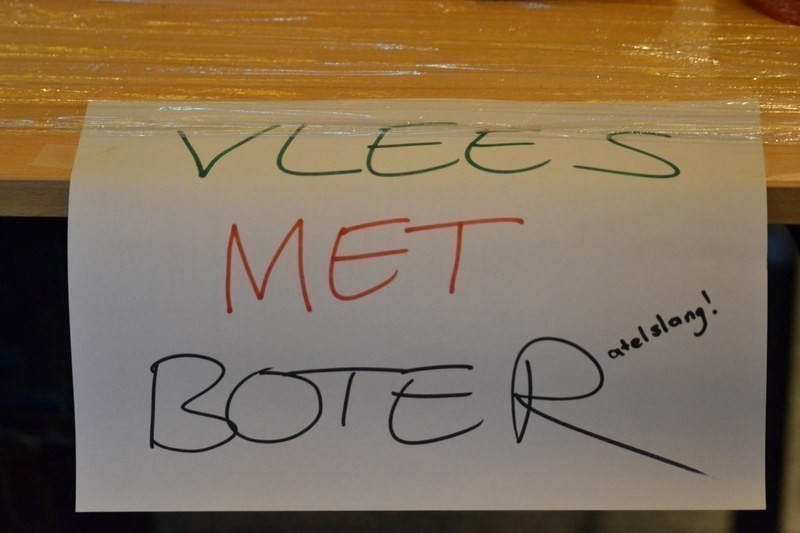 VLEES
MET
BOTER
atelslang!